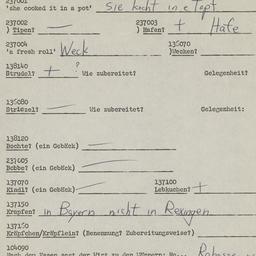 237001
'she cooked it in a pot' sie kocht in e Topf
237002 237003
) Tipen? — ) Hafen? + Hafe
237004 136070
'n fresh roll' Weck )Wecken?
138140
Strudel? + ? Wie zubereitet? Gelegenheit?
136080
Striezel? — Wie zubereitet? Gelegenheit:
138120
Bochte? (ein Gebäck)
231405
Bobbe? (ein Gebäck)
137070 137100
Kindl? (ein Gebäck) Lebkuchen? +
137150
Krapfen? in Bayern nicht in Rexingen
137160
Kröpfchen/Kröpflein? (Benennung? Zubereitungsweise?)
104090
Nach dem Essen sagt der Wirt zu den